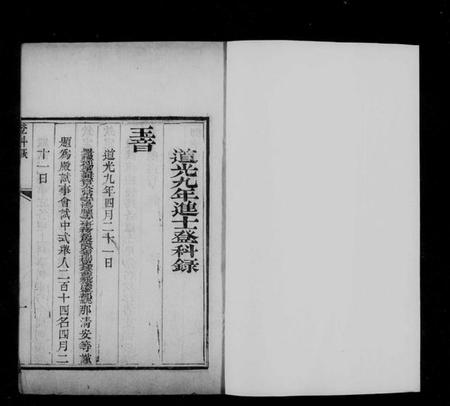 道光九年進士登科錄
玉音
道光九年四月二十一日
那清安等謹
題為殿試事會試中式舉人二百十四名四月二
十一日
登科錄
一